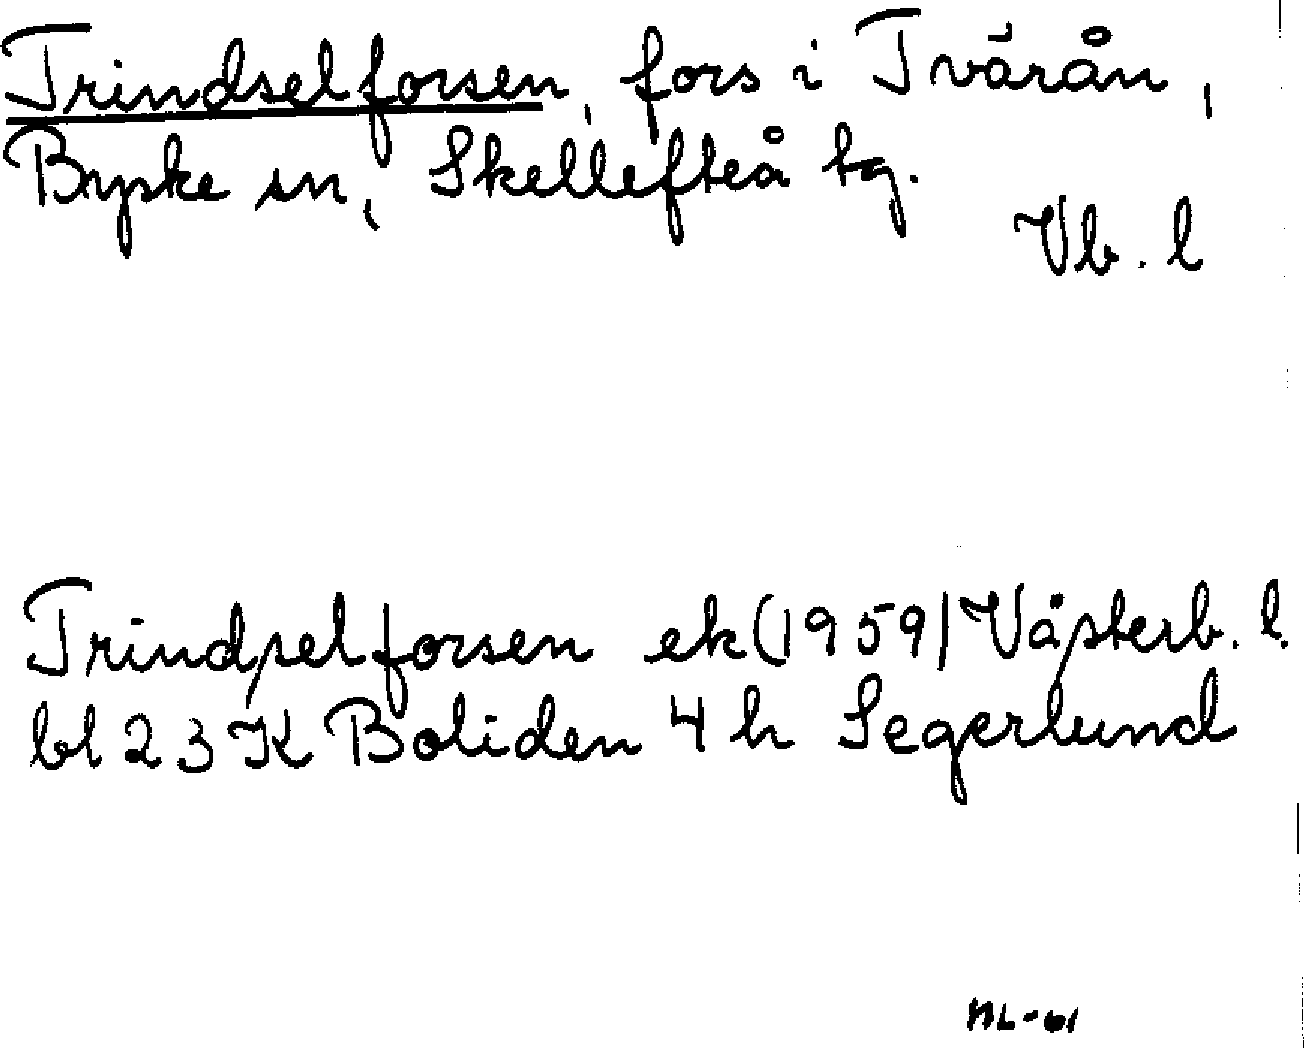 Trindselforsen, fors i Tvärån,
Byske sn, Skellefteå tg.
Vb. l
Trindselforsen ek (1959) Västerb. l.
bl 23K Boliden 4 h Segerlund
ML-61